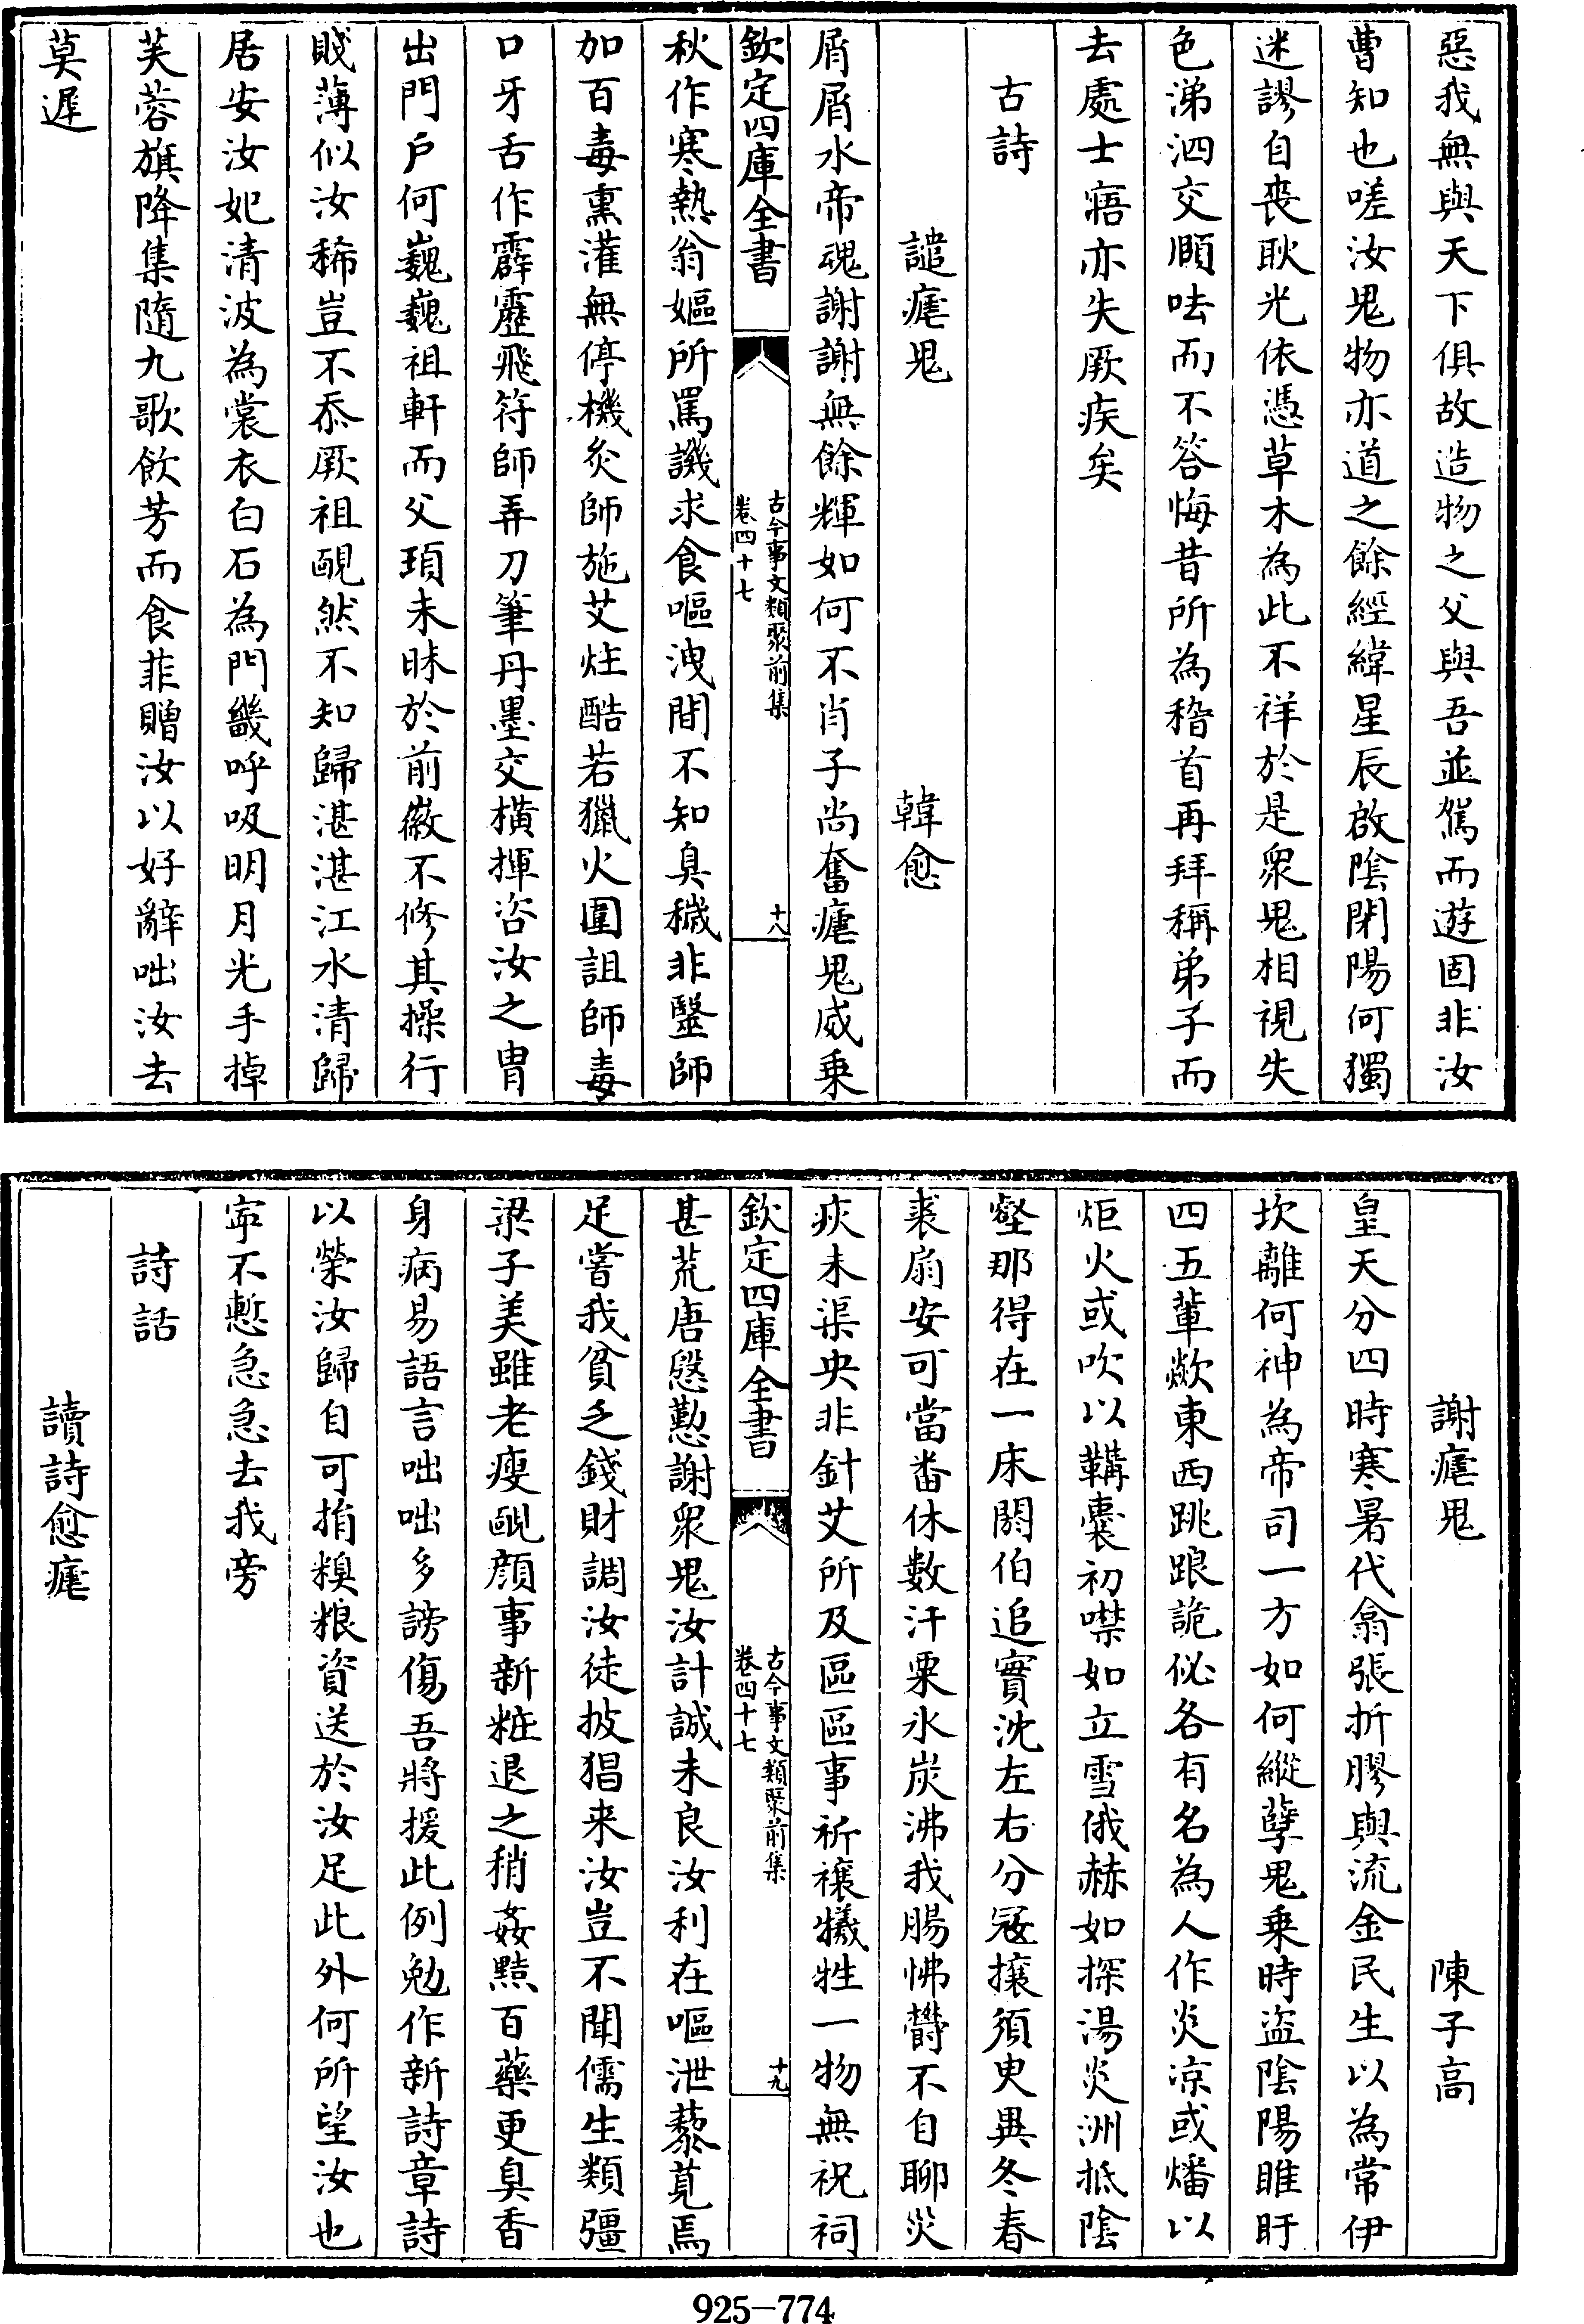 惡我無與天下俱故造物之父與吾並駕而遊固非汝
曹知也嗟汝鬼物亦道之餘經緯星辰啟陰閉陽何獨
迷謬自喪耿光依憑草木為此不祥於是衆鬼相視失
色涕泗交頤呿而不答悔昔所為稽首再拜稱弟子而
去處士寤亦失厥疾矣
古詩
譴瘧鬼 韓愈
屑屑水帝魂謝謝無餘輝如何不肖子尚奮瘧鬼威乗
欽定四庫全書
古今事文類聚前集
卷四十七
十八
秋作寒熱翁嫗所罵譏求食嘔洩間不知臭穢非毉師
加百毒熏灌無停機灸師施艾炷酷若獵火圍詛師毒
口牙舌作霹靂飛符師弄刀筆丹墨交橫揮咨汝之胄
出門戶何巍巍祖軒而父頊未昧於前徽不修其操行
賤薄似汝稀豈不忝厥祖靦然不知歸湛湛江水清歸
居安汝妃清波為裳衣白石為門畿呼吸明月光手掉
芙蓉旗降集隨九歌飲芳而食菲贈汝以好辭咄汝去
莫遲
謝瘧鬼 陳子高
皇天分四時寒暑代翕張折膠與流金民生以為常伊
坎離何神為帝司一方如何縱孽鬼乗時盜陰陽睢盱
四五輩歘東西跳踉詭佖各有名為人作炎凉或燔以
炬火或吹以鞴囊初噤如立雪俄赫如探湯炎洲抵陰
壑那得在一床閼伯追實沈左右分寇攘須臾異冬春
裘扇安可當畨休數汗粟氷炭沸我腸怫鬱不自聊災
疢未渠央非針艾所及區區事祈禳犧牲一物無祝祠
欽定四庫全書
古今事文類聚前集
卷四十七
十九
甚荒唐慇懃謝衆鬼汝計誠未良汝利在嘔泄藜莧焉
足嘗我貧乏錢財調汝徒披猖来汝豈不聞儒生類彊
梁子美雖老瘦靦顏事新粧退之稍姦黠百藥更臭香
身病易語言咄咄多謗傷吾將援此例勉作新詩章詩
以榮汝歸自可捐糗粮資送於汝足此外何所望汝也
寜不慙急急去我旁
詩話
讀詩愈瘧
925-774